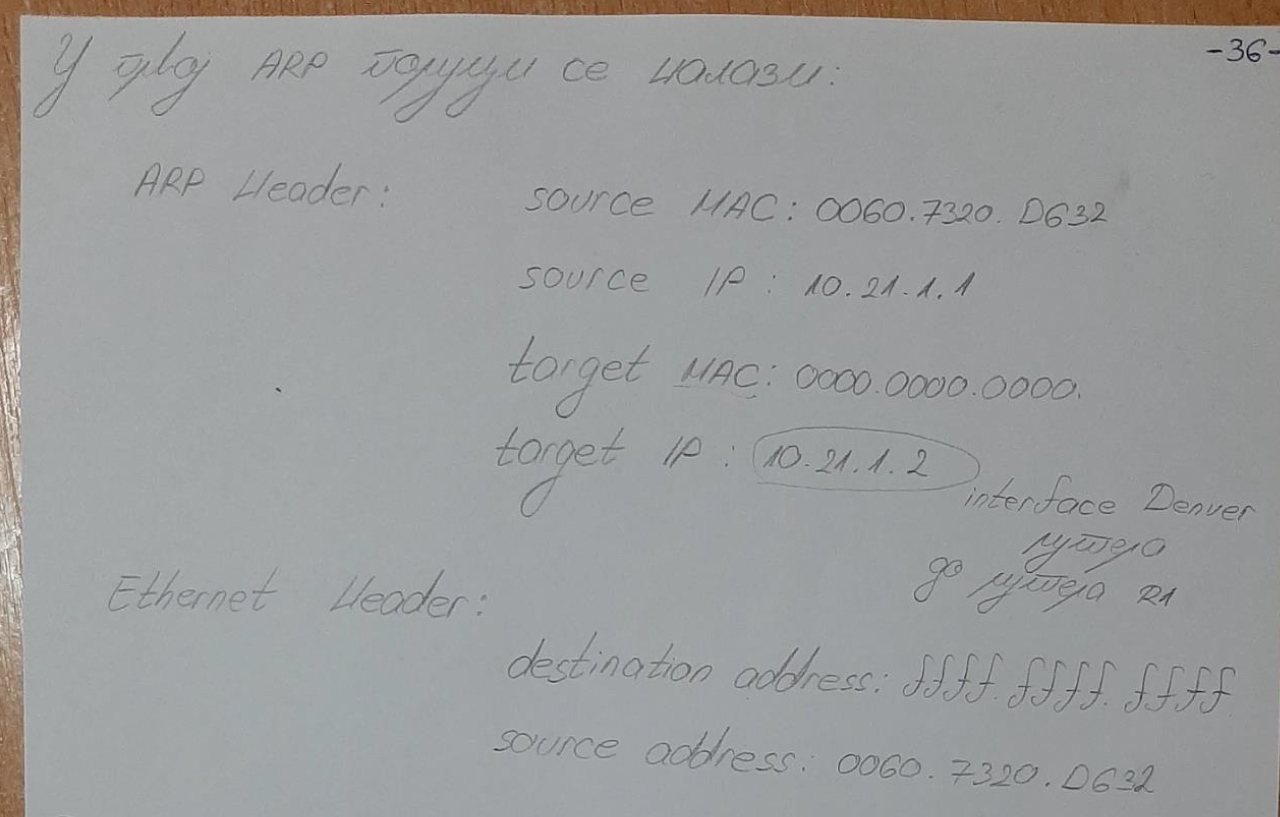 -36-
У првој ARP поруци се налази:
ARP Header: source MAC: 0060.7320.D632
source IP: 10.21.1.1
target MAC: 0000.0000.0000.
target IP: 10.21.1.2
interface Denver
рутера
до рутера R1
Ethernet Header:
destination address: ffff.ffff.ffff
source address: 0060.7320.D632